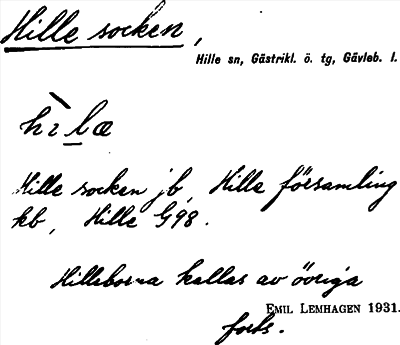 Hille socken,
Hille sn, Gästrikl. ö. tg, Gävleb. l.
Hille socken jb, Hille församling
kb, Hille G98.
Hilleborna kallas av övriga
EMIL LEMHAGEN 1931.
forts.